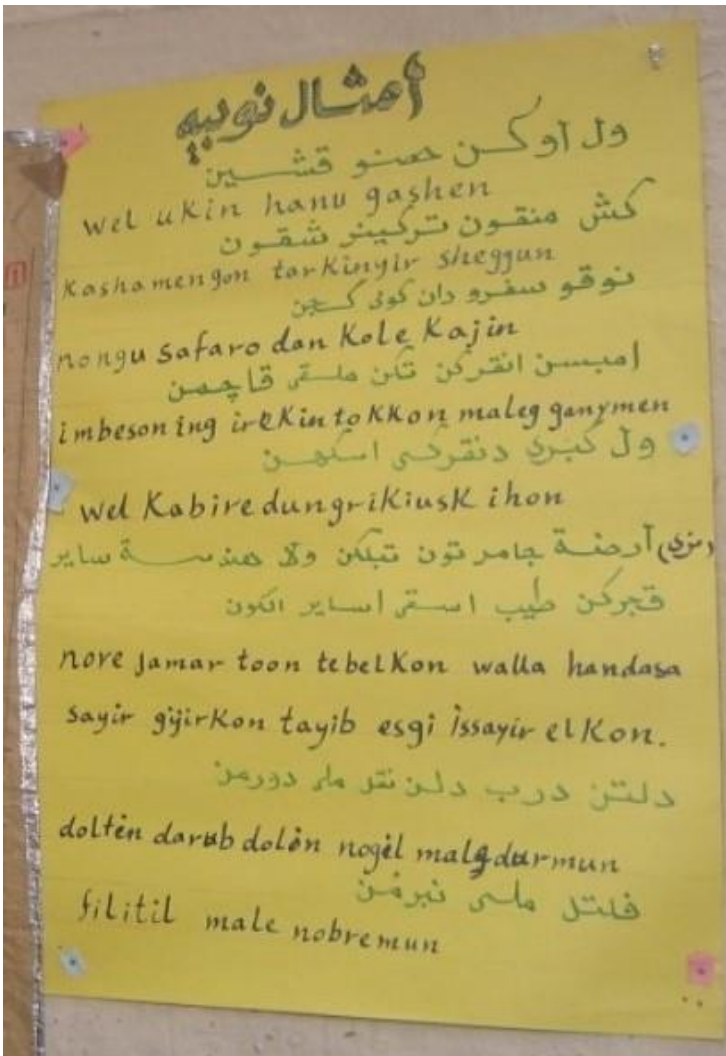 أمثال نوبيه
ول أوكن حصنو قشين
wel ukin hanu gashen
كش منقون تركينر شقون
Kashamengon tarkinyir sheggun
نوقو سفرو دان كولى كجن
nongu safaro dan Kole Kajin
امبسن انقركن تكن ملقى قاجمن
imbeson ing irekin tokkon maleg ganymen
ول كبرى دنقركى اسكهن
wel Kabire dungrikiusk ihon
آرضة جامر تون تبلكن ولا هندسة ساير
قجركن طيب اسقى اساير الكون
nore Jamar toon tebelkon walla handasa
sayir gijirkon tayib esgi issayir elkon.
دلتن درب دلن نقر ملى دورمن
dolten darub dolen nogel maleg durmun
فلتل ملى نبرمن
filitil male nobremun